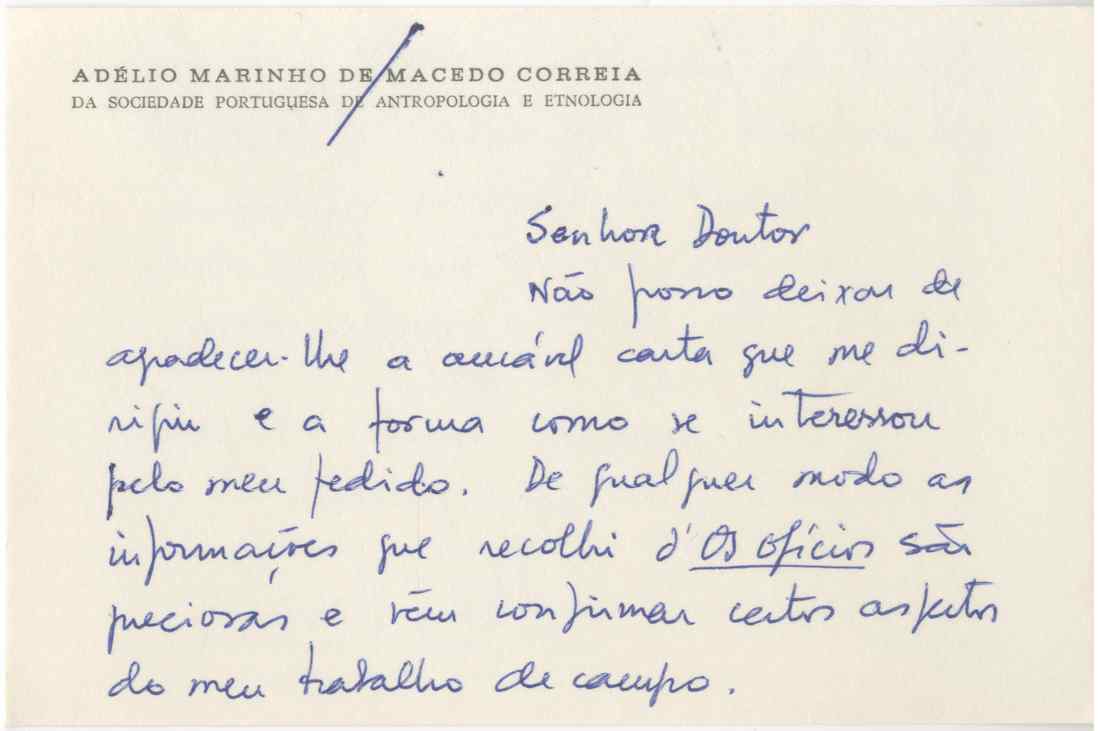 ADÉLIO MARINHO DE MACEDO CORREIA
DA SOCIEDADE PORTUGUESA DE ANTROPOLOGIA E ETNOLOGIA
Senhor Doutor
Não posso deixar de
agradecer-lhe a amável carta que me di-
rigiu e a forma como se interessou
pelo meu pedido. De qualquer modo as
informações que recolhi d'Os ofícios são
preciosas e vêm confirmar certos aspetos
do meu trabalho de campo.